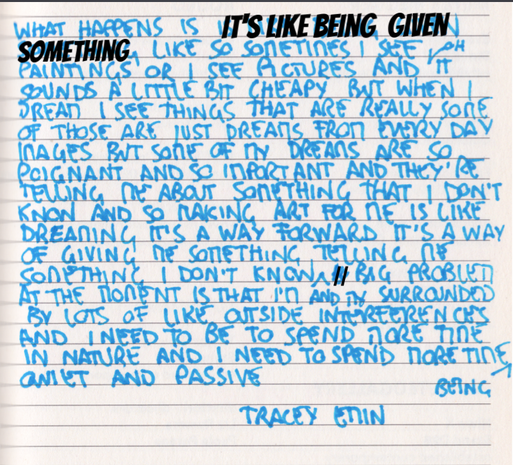 WHAT HAPPENS IS IT'S LIKE BEING GIVEN
SOMETHING LIKE SO SOMETIMES I SEE
PAINTINGS OR I SEE PICTURES AND IT
SOUNDS A LITTLE BIT CHEAPY BUT WHEN I
DREAM I SEE THINGS THAT ARE REALLY SOME
OF THOSE ARE JUST DREAMS FROM EVERY DAY
IMAGES BUT SOME OF MY DREAMS ARE SO
POIGNANT AND SO IMPORTANT AND THEY'RE
TELLING ME ABOUT SOMETHING THAT I DON'T
KNOW AND SO MAKING ART FOR ME IS LIKE
DREAMING IT'S A WAY FORWARD IT'S A WAY
OF GIVING ME SOMETHING TELLING ME
SOMETHING I DON'T KNOW // BIG PROBLEM
AT THE MOMENT IS THAT I'M AND MY SURROUNDED
BY LOTS OF LIKE OUTSIDE INTERFERENCES
AND I NEED TO BE TO SPEND MORE TIME
IN NATURE AND I NEED TO SPEND MORE TIME
QUIET AND PASSIVE
BEING
TRACEY EMIN